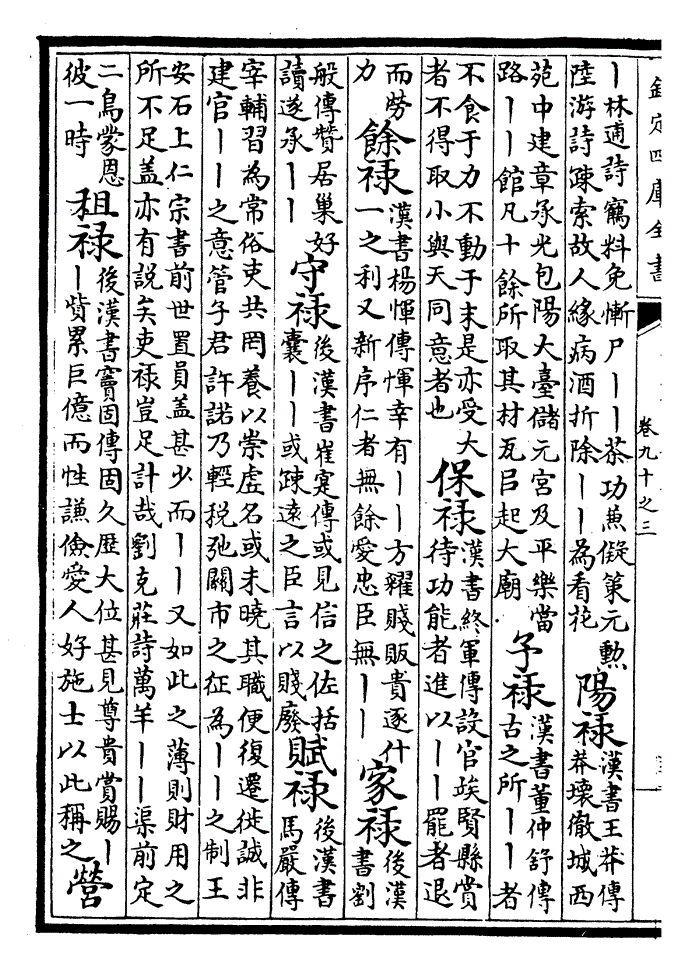 欽定四庫全書
卷九十之三
丨林逋詩鶴料免慚尸丨丨茶功無儗策元勲
陸游詩疎索故人緣病酒折除丨丨為看花
陽禄
漢書王莽傳
莽壞徹城西
苑中建章承光包陽大臺儲元宮及平樂當
路丨丨館凡十餘所取其材瓦㠯起大廟
予禄
漢書董仲舒傳
古之所丨丨者
不食于力不動于末是亦受大
者不得取小與天同意者也
保禄
漢書終軍傳設官竢賢縣賞
待功能者進以丨丨罷者退
而勞
力
餘禄
漢書楊惲傳惲幸有丨丨方糴賤販貴逐什
一之利又新序仁者無餘愛忠臣無丨丨
家禄
後漢
書劉
般傳贊居巢好
讀遂承丨丨
守禄
後漢書崔寔傳或見信之佐括
囊丨丨或疎遠之臣言以賤廢
賦禄
後漢書
馬嚴傳
宰輔習為常俗吏共罔養以崇虛名或未曉其職便復遷徙誠非
建官丨丨之意管子君許諾乃輕税弛關市之征為丨丨之制王
安石上仁宗書前世置員蓋甚少而丨丨又如此之薄則財用之
所不足蓋亦有説矣吏禄豈足計哉劉克莊詩萬羊丨丨渠前定
二鳥蒙恩
彼一時
租禄
後漢書竇固傳固久歴大位甚見尊貴賞賜丨
丨貲累巨億而性謙儉愛人好施士以此稱之
營